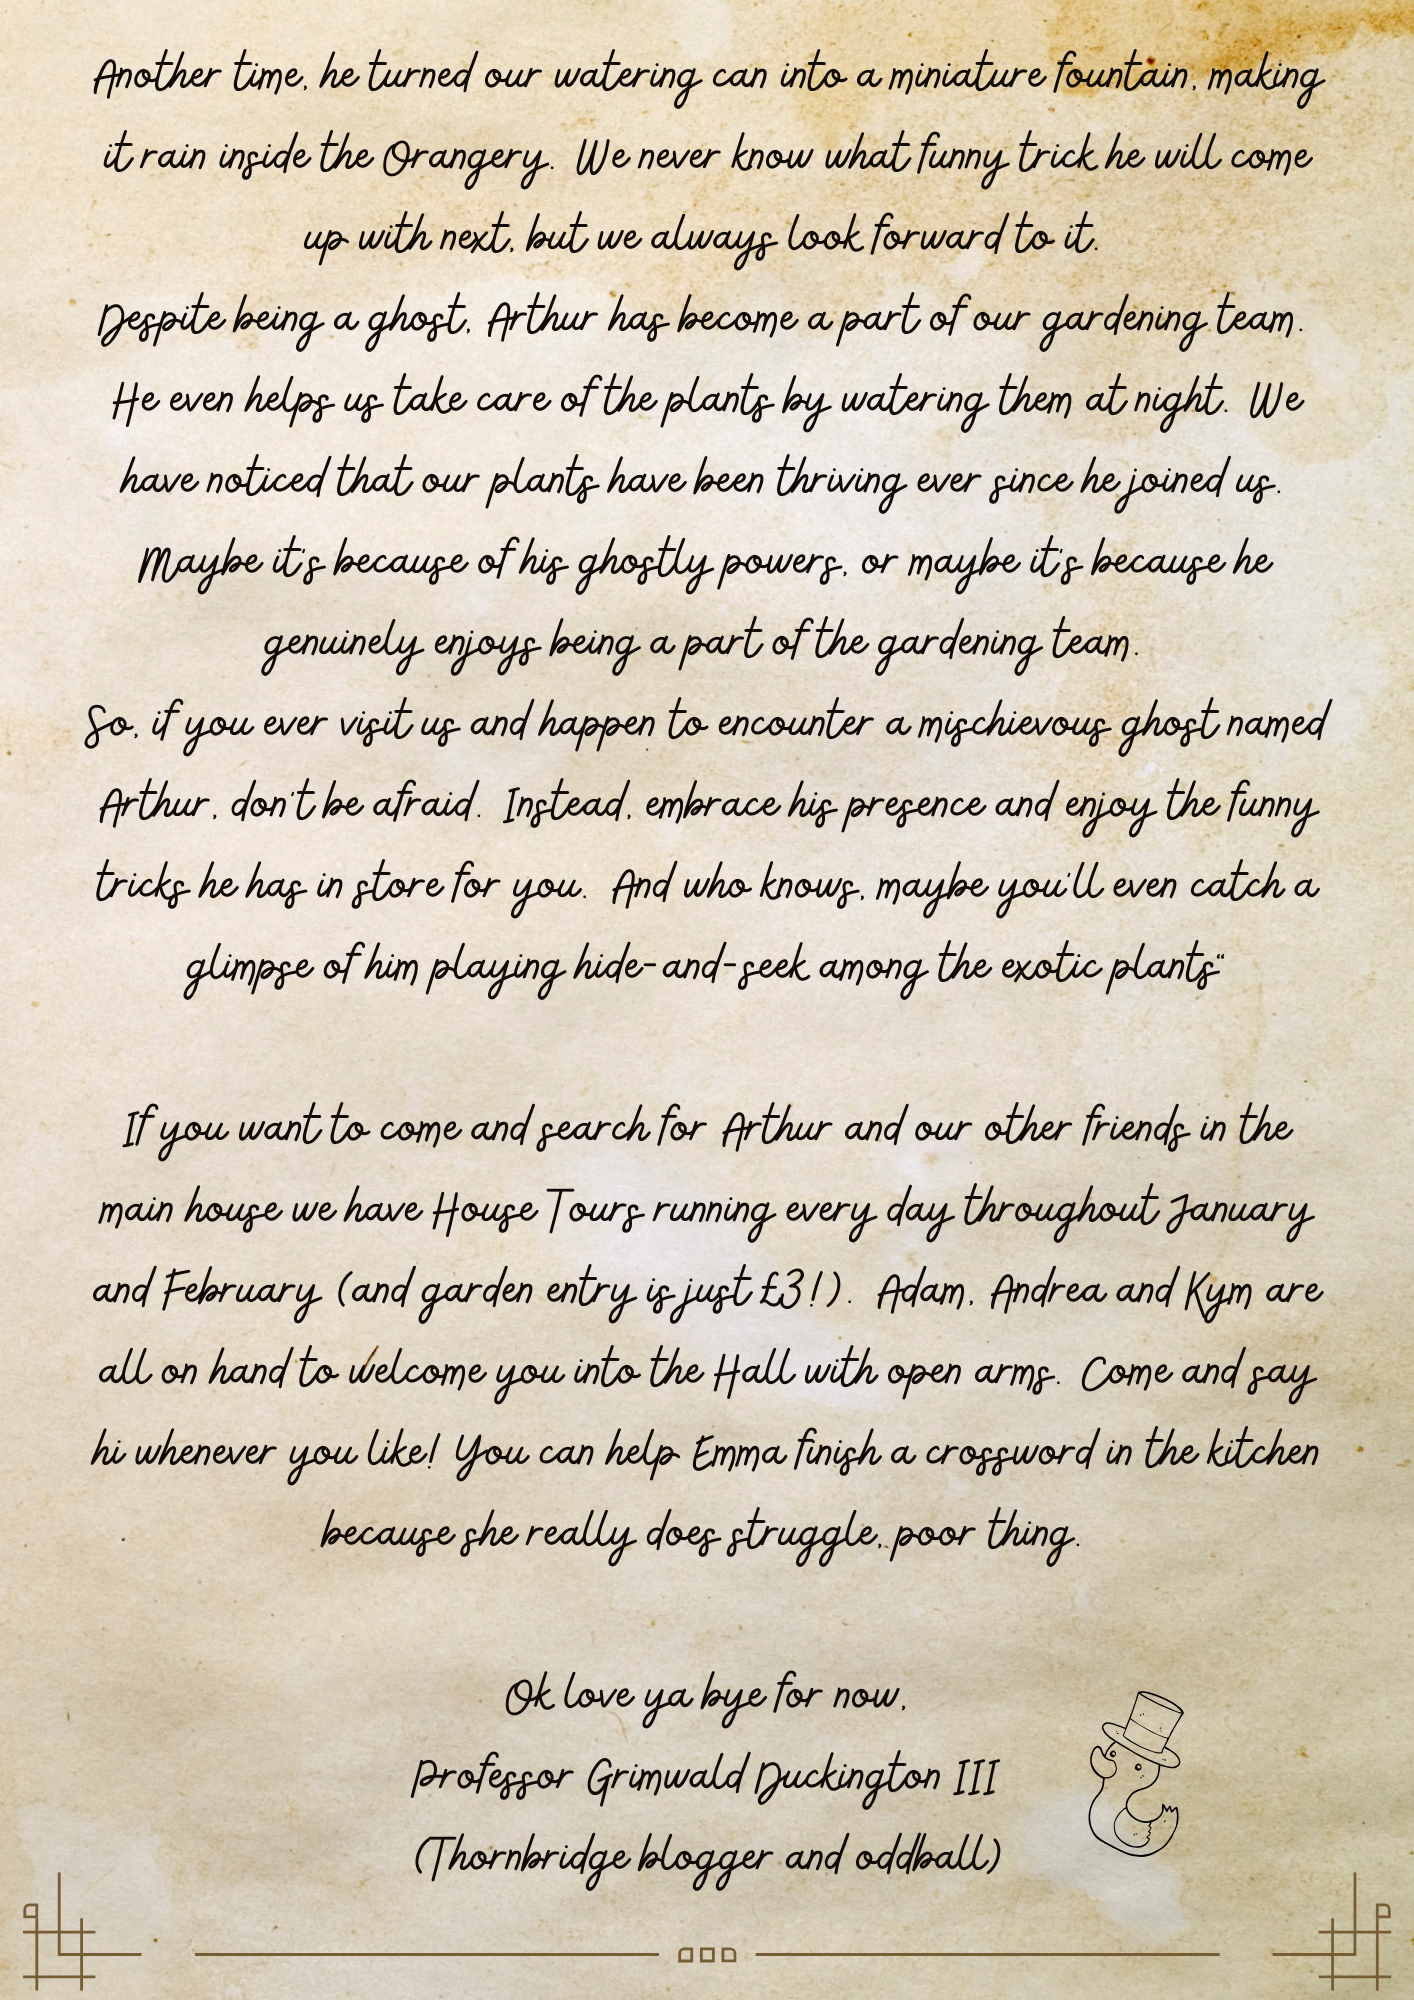 Another time, he turned our watering can into a miniature fountain, making
it rain inside the Orangery. We never know what funny trick he will come
up with next, but we always look forward to it.
Despite being a ghost, Arthur has become a part of our gardening team.
He even helps us take care of the plants by watering them at night. We
have noticed that our plants have been thriving ever since he joined us.
Maybe it's because of his ghostly powers, or maybe it's because he
genuinely enjoys being a part of the gardening team.
So, if you ever visit us and happen to encounter a mischievous ghost named
Arthur, don't be afraid. Instead, embrace his presence and enjoy the funny
tricks he has in store for you. And who knows, maybe you'll even catch a
glimpse of him playing hide-and-seek among the exotic plants“
If you want to come and search for Arthur and our other friends in the
main house we have House Tours running every day throughout January
and February (and garden entry is just £3!). Adam, Andrea and Kym are
all on hand to welcome you into the Hall with open arms. Come and say
hi whenever you like! You can help Emma finish a crossword in the kitchen
because she really does struggle, poor thing.
Ok love ya bye for now,
Professor Grimwald Duckington III
(Thornbridge blogger and oddball)